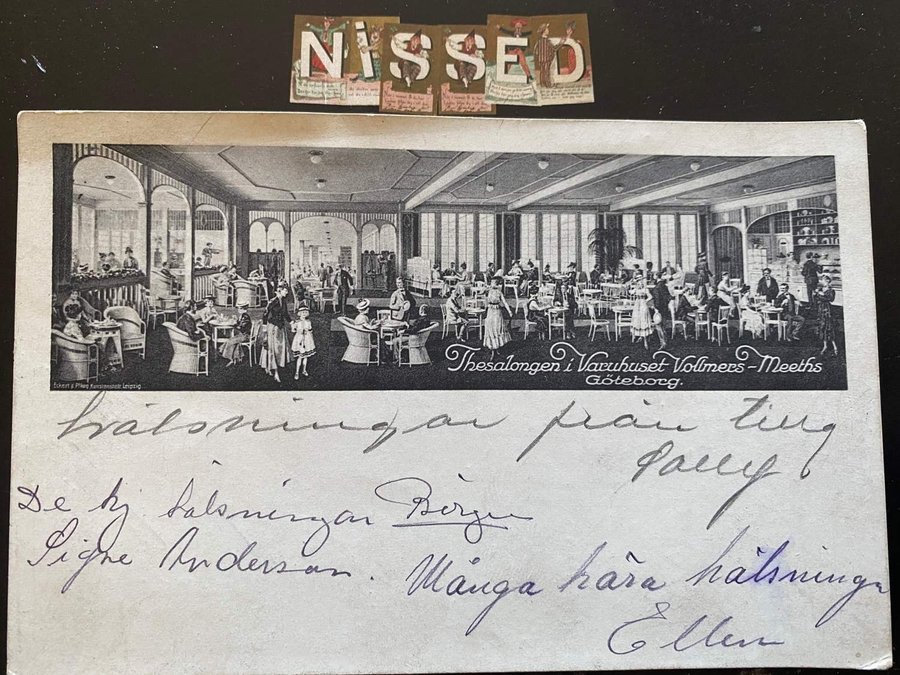 NISSED
Thesalongen i Varuhuset Vollmers-Meeths
Göteborg.
Eckert & Pflug Kunstanstalt Leipzig
hälsningar från
De hj hälsningar
Signe Anderson.
Många kära hälsninga
Ellen